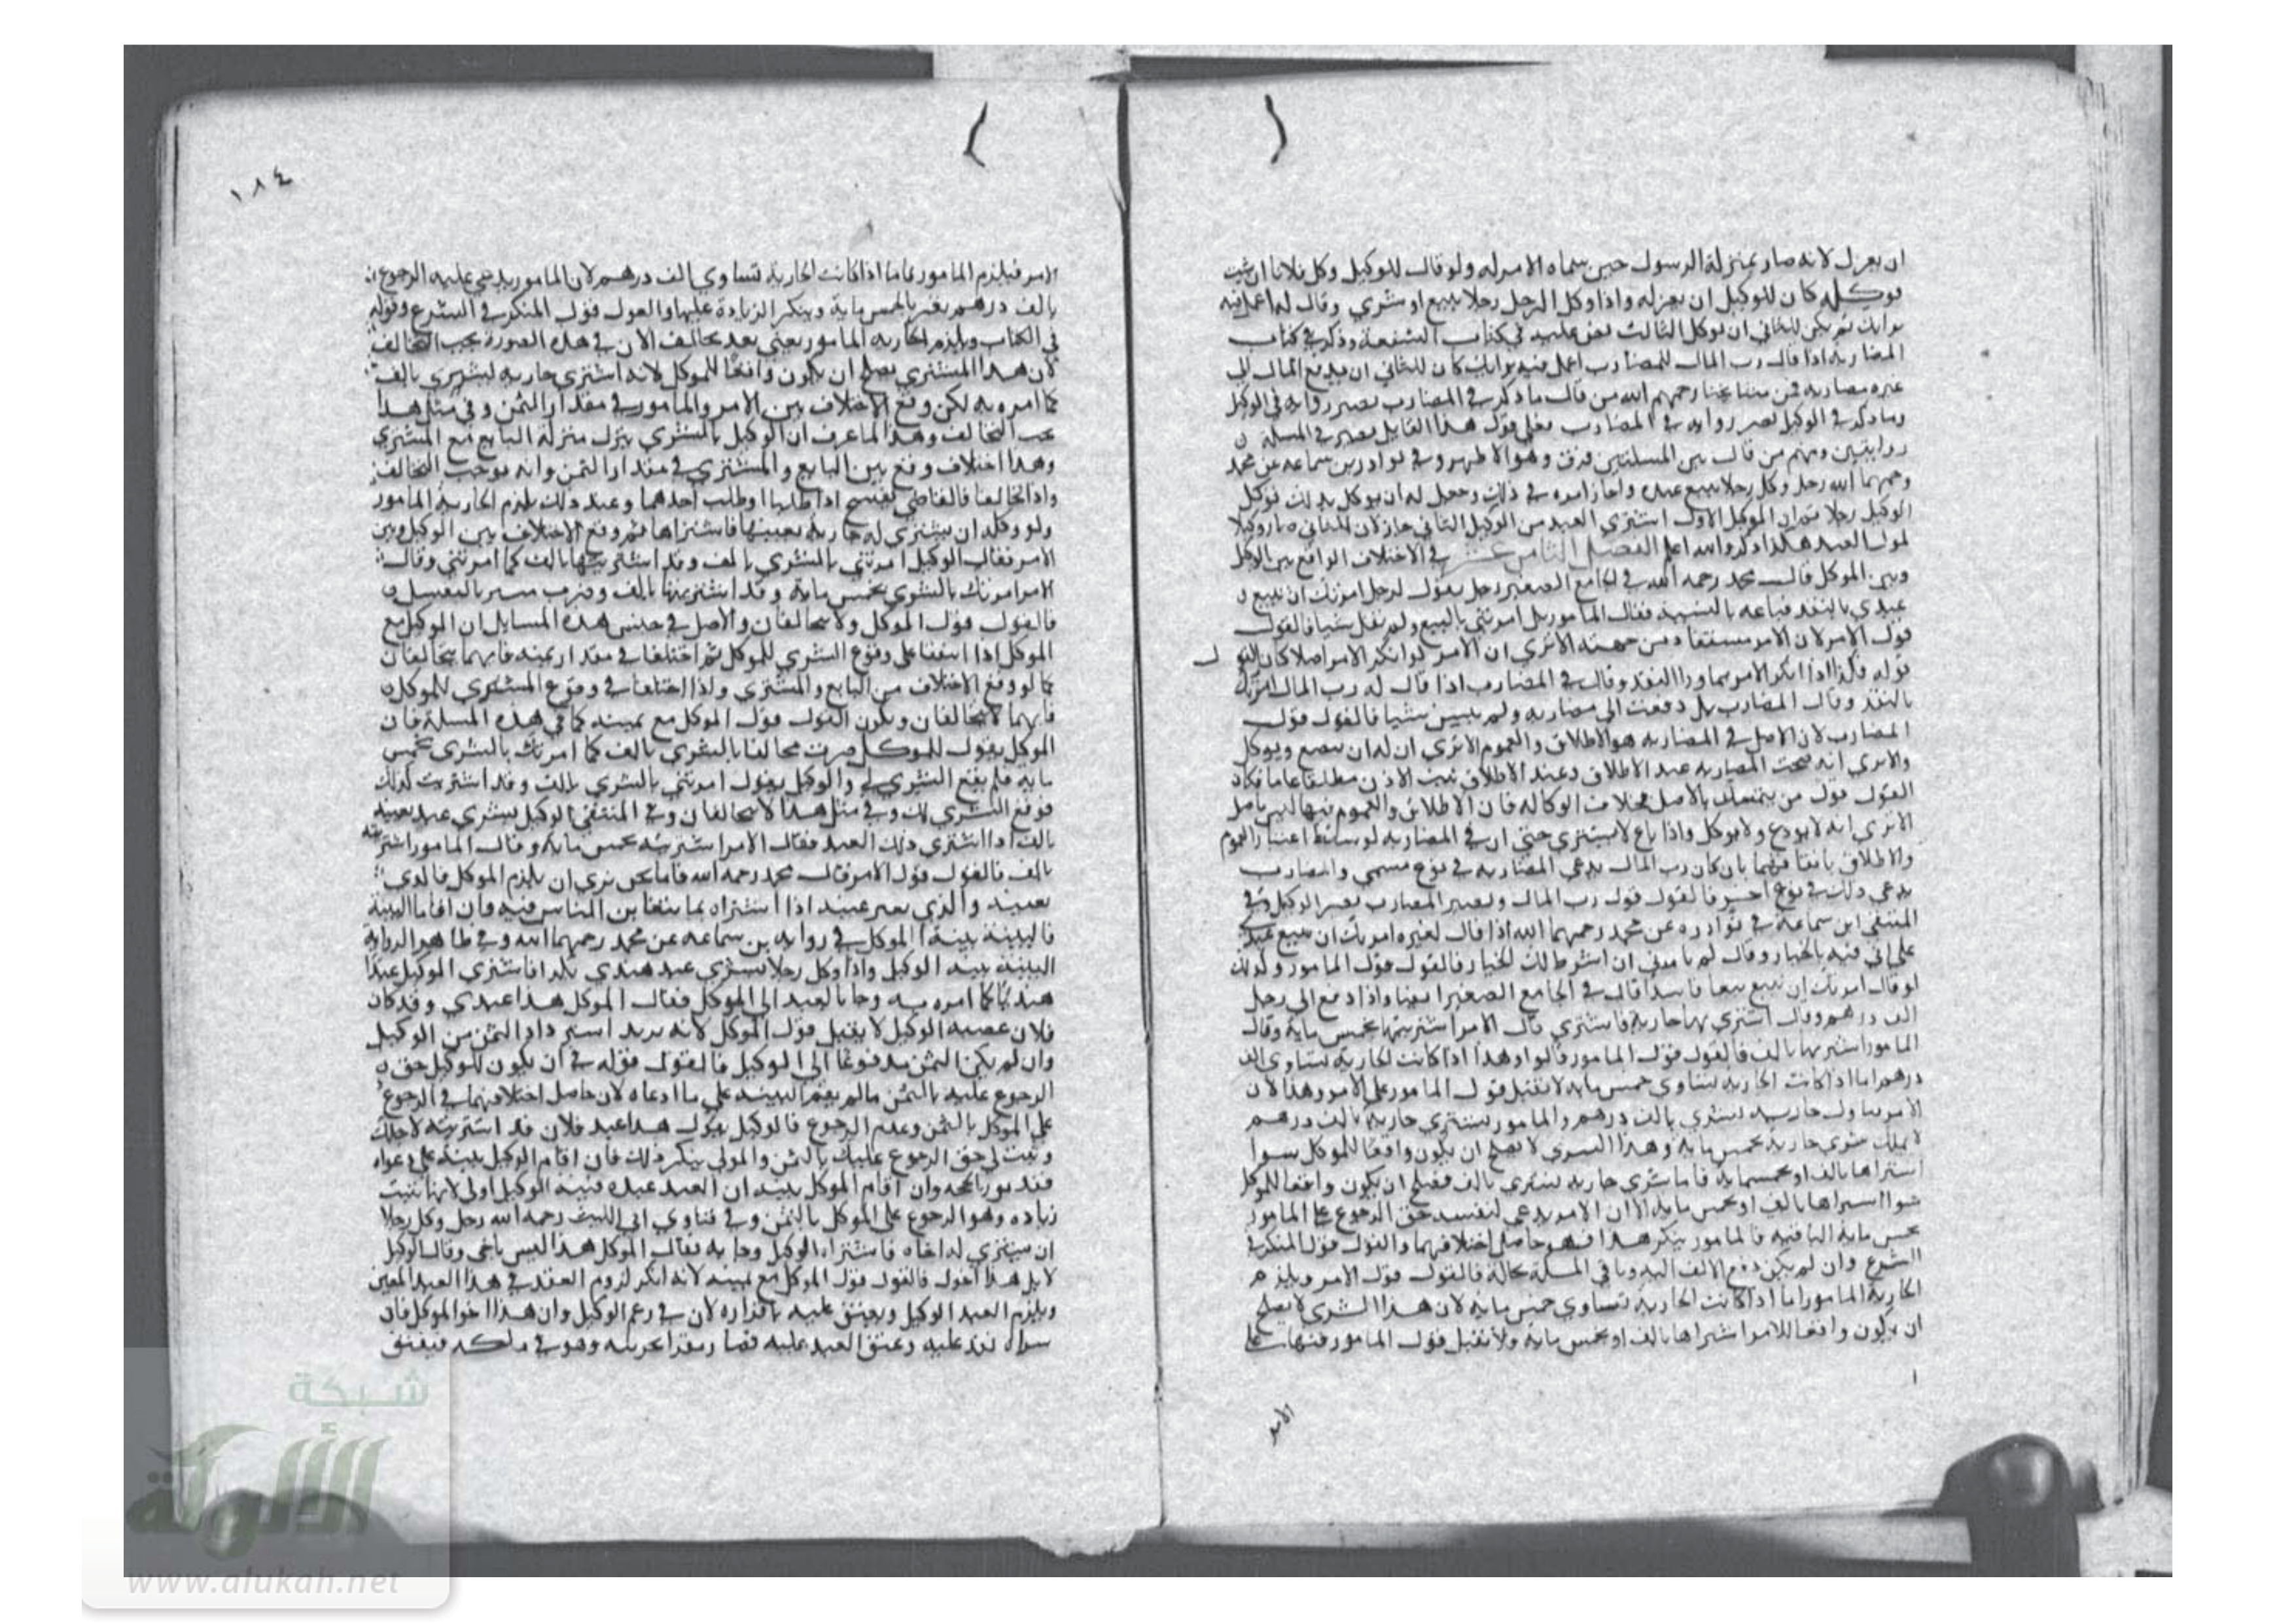 ان يعزل لانه صار بمنزلة الرسول حين سماه الامر له ولو قال للوكيل وكل فلانا ان شيت
فوكله كان للوكيل ان يعزله واذا وكل الرجل رجلا ببيع او شري وقال له اعمل فيه
برايك لم يكن للثاني ان يوكل الثالث نص عليه في كتاب الشفعة وذكر في كتاب
المضاربه اذا قال رب المال للمضارب اعمل فيه برايك كان للثاني ان يدفع المال الى
غيره مضاربه فمن مشايخنا رحمهم الله من قال ما ذكر في المضارب يصير روايه في الوكيل
وما ذكر في الوكيل يصير روايه في المضارب فعلى قول هذا القايل يصير في المسلة
روايتين ومنهم من قال بين المسلتين فرق وهو الاظهر وفي نوادر بن سماعه عن محمد
رحمهما الله رجل وكل رجلا ببيع عبده واجاز امره في ذلك وجعل له ان يوكل بذلك فوكل
الوكيل رجلا ثم ان الموكل الاول اشتري العبد من الوكيل الثاني جاز لان الثاني صار وكيلا
لمولى العبد هكذا ذكر والله اعلم الفصل الثامن عشر في الاختلاف الواقع بين الوكيل
وبين الموكل قال محمد رحمه الله في الجامع الصغير رجل يقول لرجل امرتك ان تبيع
عبدي بالنقد فباعه بالنسيه فقال المامور بل امرتني بالبيع ولم تقل شيا فالقول
قول الامر لان الامر مستفاد من جهته الا تري ان الامر لو انكر الامر اصلا كان القول
قوله فكذا اذا انكر الامر بما ورا النقد وقال في المضارب اذا قال له رب المال امرتك
بالنقد وقال المضارب بل دفعت الي مضاربه ولم تبين شيا فالقول قول
المضارب لان الاصل في المضاربه هو الاطلاق والعموم الا تري ان له ان يبضع ويوكل
والا تري انه صحت المضاربه عند الاطلاق وعند الاطلاق يثبت الاذن مطلقا عاما فكان
القول قول من يتمسك بالاصل بخلاف الوكاله فان الاطلاق والعموم فيها ليس باصل
الا تري انه لا يودع ولا يوكل واذا باع لا يشتري حتى ان في المضاربه لو سقط اعتبار العموم
والاطلاق باتفاقهما بان كان رب المال يدعي المضاربه في نوع مسمي والمضارب
يدعي ذلك في نوع اخر فالقول قول رب المال ويصير المضارب نصير الوكيل وفي
المنتقى ابن سماعة في نوادره عن محمد رحمهما الله اذا قال لغيره امرتك ان تبيع عبدي
على اني فيه بالخيار وقال لم تامرني ان اشترط لك الخيار فالقول قول المامور وكذلك
لو قال امرتك ان تبيع بيعا فاسدا قال في الجامع الصغير ايضا واذا دفع الى رجل
الف درهم وقال اشتري بها جاريه فاشتري قال الامر اشتريتها بخمس ماية وقال
المامور اشتريتها بالف فالقول قول المامور قالوا وهذا اذا كانت الجاريه تساوي الف
درهم اما اذا كانت الجاريه تساوي خمس مايه لا يقبل قول المامور على الامر وهذا لان
الامر تناول جاريه تشتري بالف درهم والمامور يشتري جارية بالف درهم
لا يملك شرى جاريه بخمس مايه وهذا الشري لا يصلح ان يكون واقعا للموكل سوا
اشتراها بالف او بخمسمايه فاما شري جاريه تشتري بالف فيصلح ان يكون واقعا للموكل
سوا اشتراها بالف او بخمس مايه الا ان الامر يدعي لنفسه حق الرجوع على المامور
بخمس مايه الباقيه فالمامور ينكر هذا فهو حاصل اختلافهما والقول قول المنكر في
الشرع وان لم يكن دفع الالف اليه وباقي المسلة بحاله فالقول قول الامر ويلزم
الجارية المامور اما اذا كانت الجارية تساوي خمس مايه لان هذا الشري لا يصلح
ان يكون واقعا للامر اشتراها بالف او بخمس ماية ولا يقبل قول المامور فيها على
الامر
١٨٤
الامر فيلزم المامور فاما اذا كانت الجارية تساوي الف درهم لان المامور يدعي عليه الرجوع
بالف درهم يقر بالخمس ماية وينكر الزيادة عليها والقول قول المنكر في الشرع وقوله
في الكتاب ويلزم الجاريه المامور يعني بعد تحالف لان في هذه الصورة يجب التحالف
لان هذا المشتري يصلح ان يكون واقعا للموكل لانه اشتري جاريه تشتري بالف
كما امره به لكن وقع الاختلاف بين الامر والمامور في مقدار الثمن وفي مثل هذا
يجب التحالف وهذا لما عرف ان الوكيل بالمشتري ينزل منزلة البايع مع المشتري
وهذا اختلاف وقع بين البايع والمشتري في مقدار الثمن وانه يوجب التحالف
واذا تحالفا فالقاضي يفسخ اذا طلبا او طلب احدهما وعند ذلك يلزم الجارية المامور
ولو وكله ان يشتري له جارية بعينها فاشتراها ثم وقع الاختلاف بين الوكيل وبين
الامر فقال الوكيل امرتني بالمشري بالف وقد اشتريتها بالف كما امرتني وقال
الامر امرتك بالشري بخمس ماية وقد اشتريتها بالف
فالقول قول الموكل ولا يتحالفان والاصل في جنس هذه المسايل ان الوكيل مع
الموكل اذا اتفقا على وقوع الشري للموكل ثم اختلفا في مقدار ثمنه فانهما يتحالفان
كما لو وقع الاختلاف بين البايع والمشتري واذا اختلفا في وقوع المشتري للموكل
فانهما لا يتحالفان ويكون القول قول الموكل مع يمينه كما في هذه المسلة فان
الموكل يقول للوكيل صرت مخالفا بالشري بالف كما امرتك بالشري بخمس
مايه فلم يقع الشري لي والوكيل يقول امرتني بالشري بالف وقد اشتريت كذلك
فوقع الشري لك وفي مثل هذا لا يتحالفان وفي المنتقى الوكيل بشري عبد بعينه
بالف اذا اشتري ذلك العبد فقال الامر اشتريته بخمس ماية وقال المامور اشتريته
بالف فالقول قول الامر قال محمد رحمه الله فاما نحن نري ان يلزم الموكل فالذي
بعينه والذي بغير عينه اذا اشتراه بما يتغابن الناس فيه فان اقاما البينة
فالبينة بينة الموكل في روايه بن سماعه عن محمد رحمهما الله وفي ظاهر الرواية
البينة بينة الوكيل واذا وكل رجلا بشري عبد هندي بكذا فاشتري الوكيل عبدا
هنديا كما امره به وجا بالعبد الى الموكل فقال الموكل هذا عبدي وقد كان
فلان غصبه الوكيل لا يقبل قول الموكل لانه يريد استرداد الثمن من الوكيل
وان لم يكن الثمن مدفوعا الى الوكيل فالقول قوله في ان يكون للوكيل حق
الرجوع عليه بالثمن ما لم يقم البينه على ما ادعاه لان حاصل اختلافهما في الرجوع
على الموكل بالثمن وعدم الرجوع فالوكيل يقول هذا عبد فلان قد اشتريته لاجلك
وثبت لي حق الرجوع عليك بالثمن والمولى ينكر ذلك فان اقام الوكيل بينة على دعواه
فقد نور دعواه وان اقام الموكل بينه ان العبد عبده فبينة الوكيل اولى لانها تثبت
زياده وهو الرجوع على الموكل بالثمن وفي فتاوي ابي الليث رحمه الله رجل وكل رجلا
ان يشتري له اخاه فاشتراه الوكيل وجا به فقال الموكل هذا ليس باخي وقال الوكيل
لا بل هذا اخوك فالقول قول الموكل مع يمينه لانه انكر لزوم العقد في هذا العبد المعين
ويلزم العبد الوكيل ويعتق عليه باقراره لان في زعم الوكيل وان هذا اخو الموكل فان
شراه نفذ عليه وعتق العبد عليه فصار مقرا بحريته وهو في ملكه فيعتق
شبكة
الألوكة
www.alukah.net